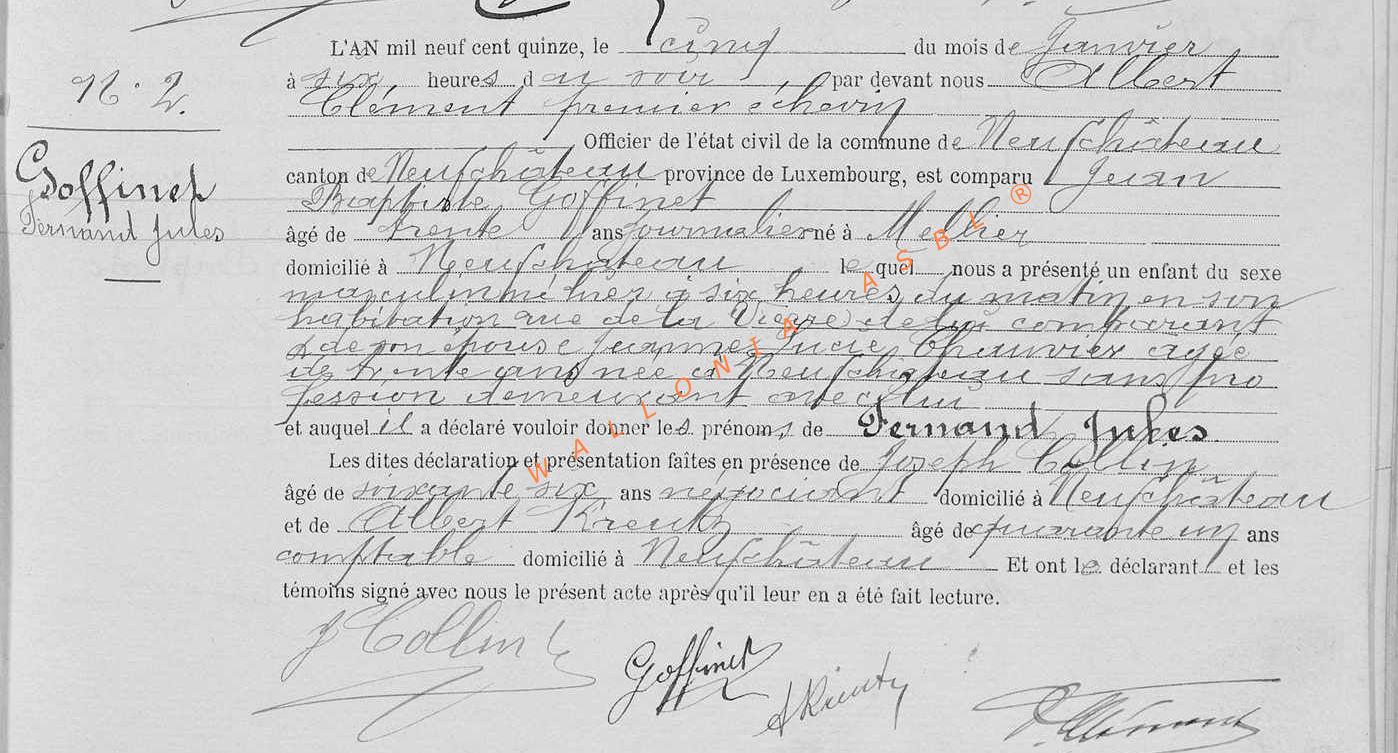 L'AN mil neuf cent quinze, le cinq du mois de Janvier
à six heures du soir, par devant nous Albert
Clément premier échevin
N. 2.
Officier de l'état civil de la commune de Neufchâteau
canton de Neufchâteau province de Luxembourg, est comparu Jean
Goffinet
Baptiste Goffinet
Fernand Jules
âgé de trente ans journalier né à Mellier
domicilié à Neufchâteau lequel nous a présenté un enfant du sexe
masculin né hier à six heures du matin en son
habitation rue de la Vierge de lui comparant
& de son épouse Jeanne Lucie Chauvier agée
de trente ans née à Neufchâteau sans pro
fession demeurant avec lui
et auquel il a déclaré vouloir donner les prénoms de Fernand Jules
Les dites déclaration et présentation faîtes en présence de Joseph Collin
âgé de soixante six ans négociant domicilié à Neufchâteau
et de Albert Kreutz âgé de quarante un ans
comptable domicilié à Neufchâteau Et ont le déclarant et les
témoins signé avec nous le présent acte après qu'il leur en a été fait lecture.
J Collin
Goffinet
A Kreutz
A Clément
WALLONIA ASBL ®